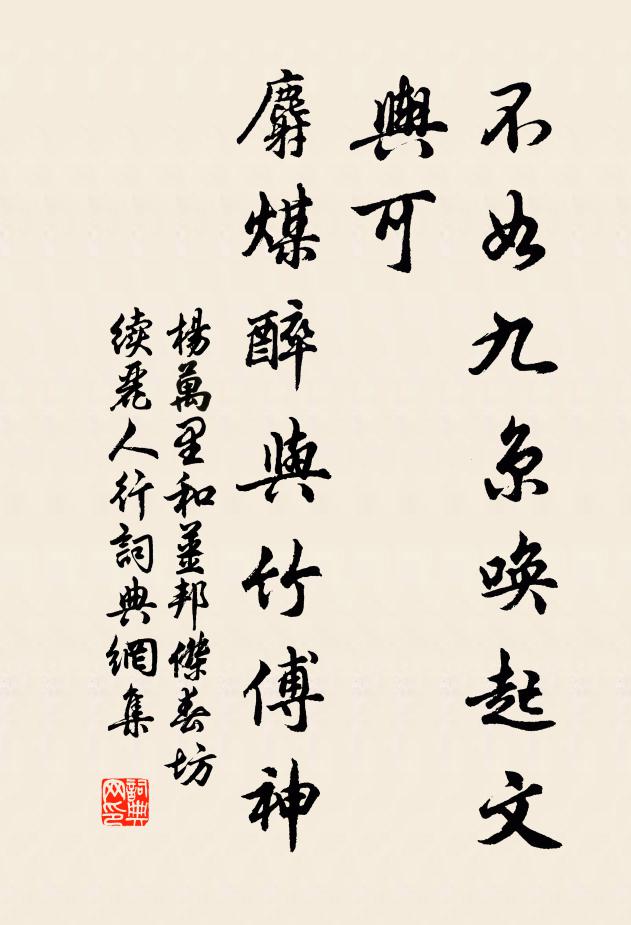 不如九京喚起文
與可
麝煤醉與竹傳神
楊萬里和薑邦傑春坊
續麗人行詞典網集
詞典
网印